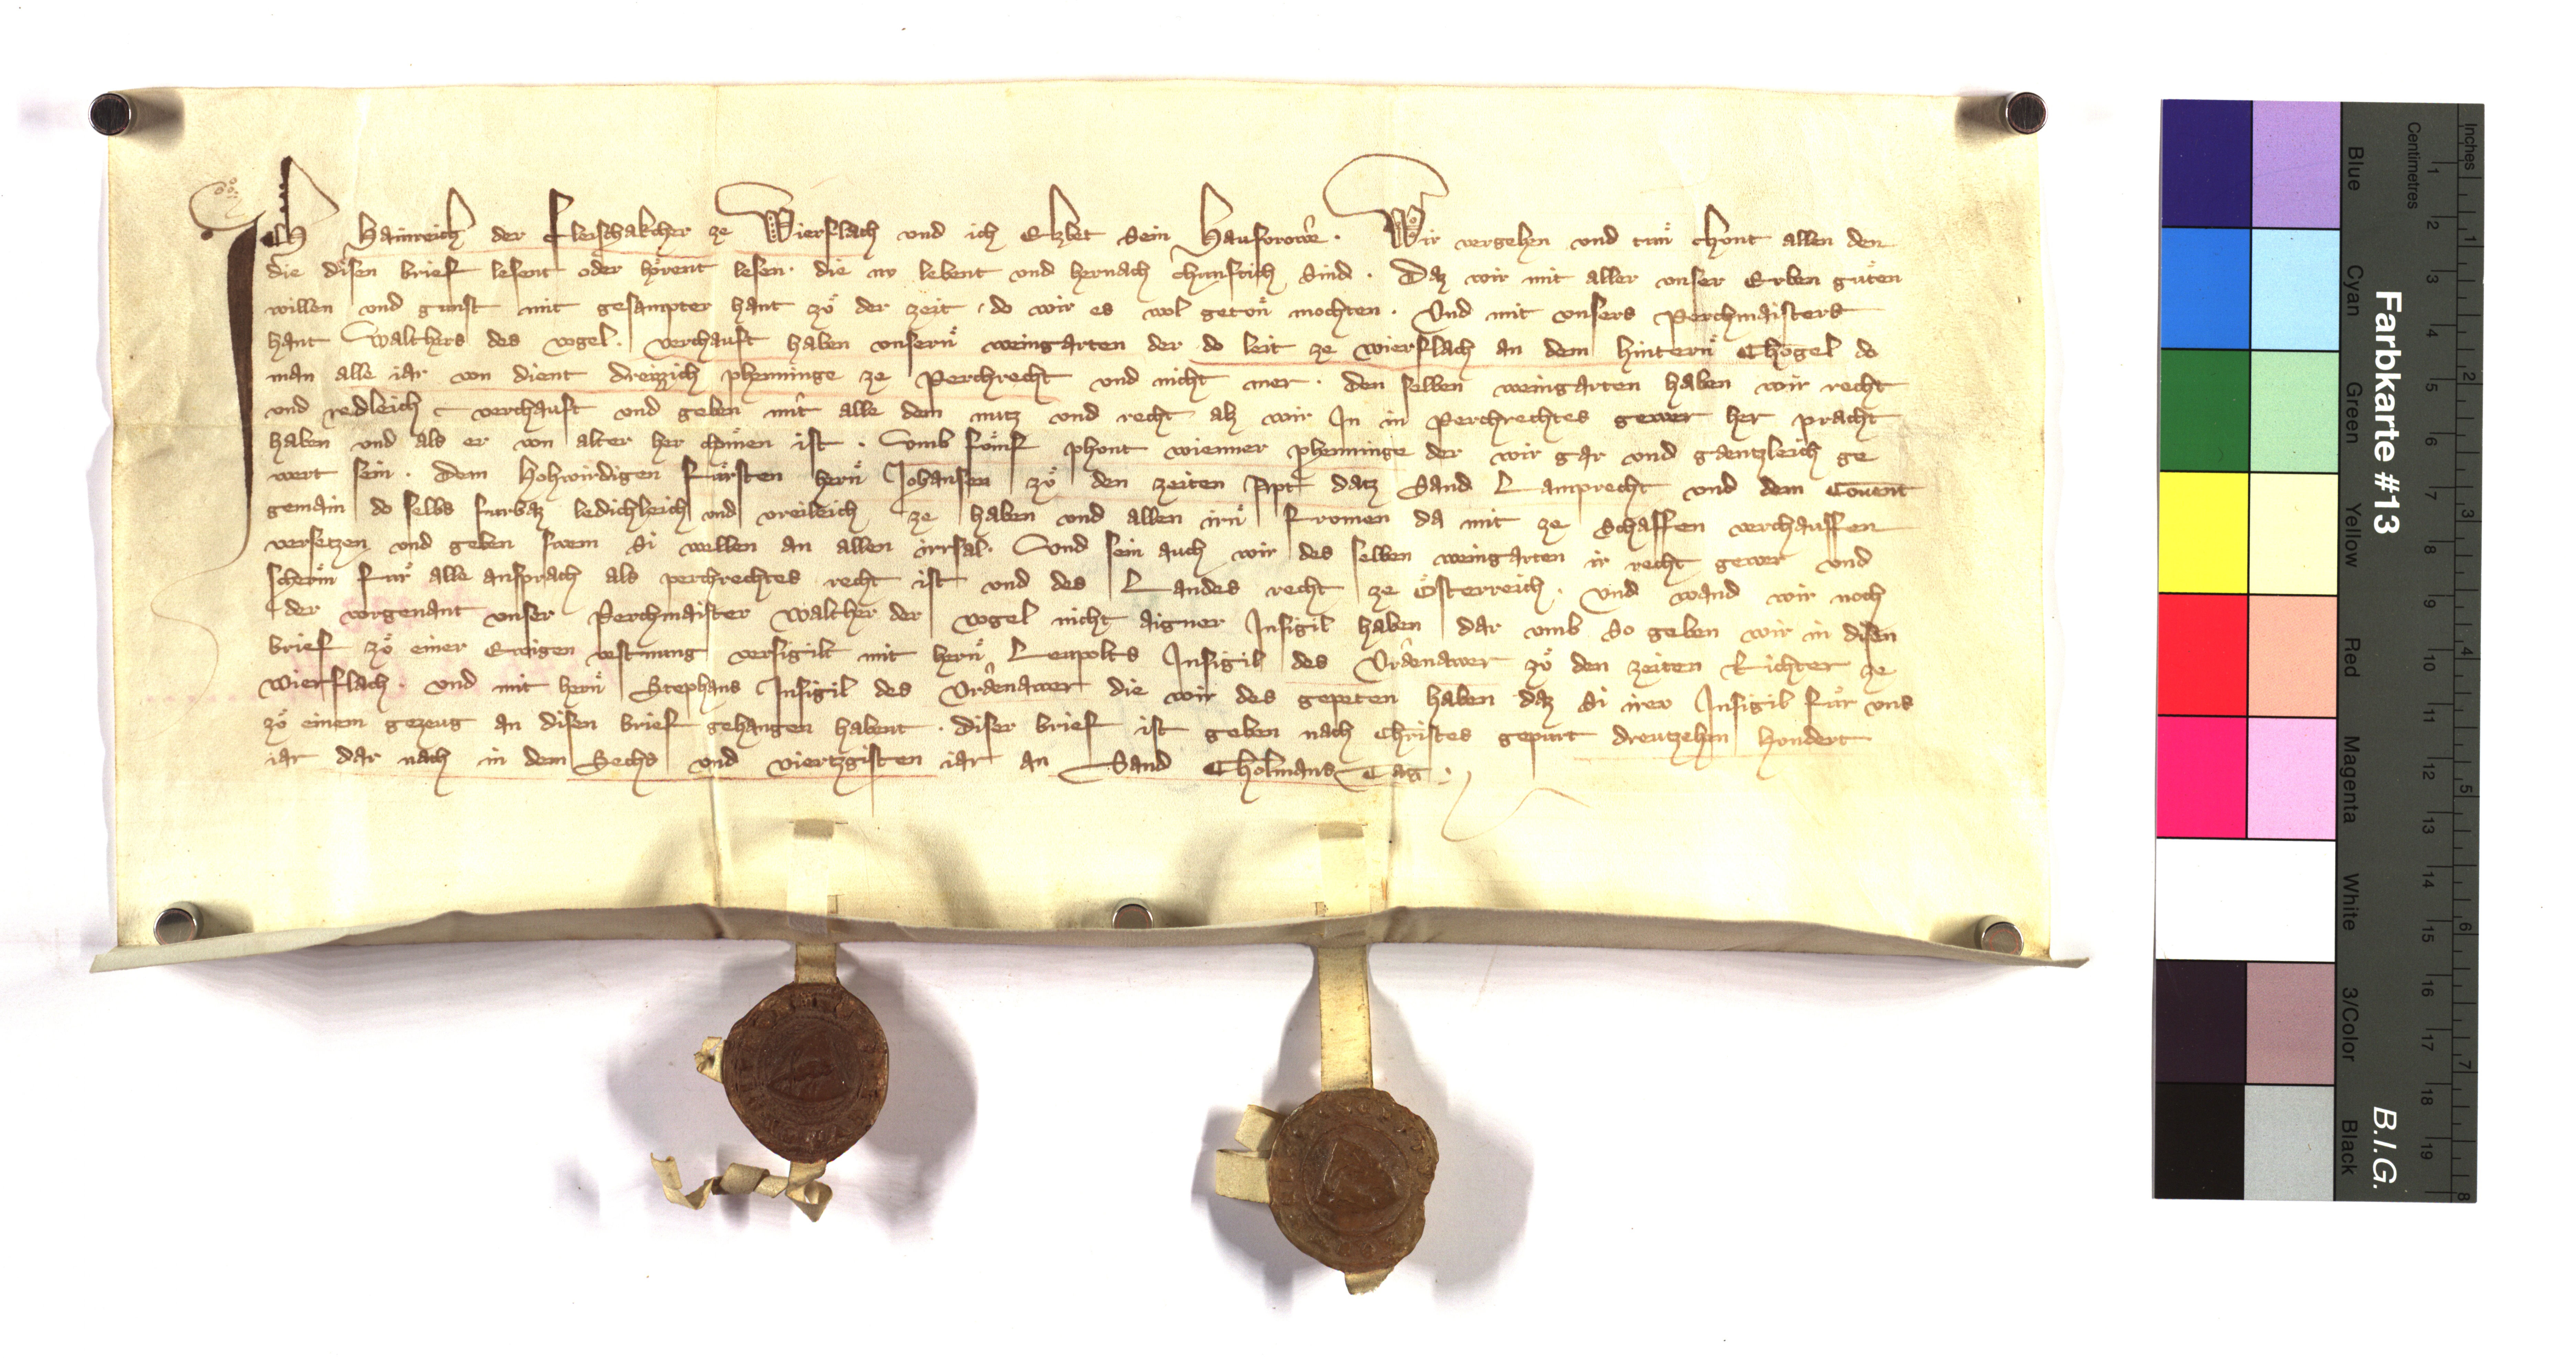 Ich Hainreich der Fleischakcher ze Wierflach vnd ich Elzbet sein Hausvrowe. Wir vergehen vnd tun chont allen den
die disen brief lesent oder hörent lesen. die nv lebent vnd hernach chunftich sind. Daz wir mit aller vnser Erben guten
willen vnd gunst mit gesampter hant zů der zeit do wir es wol geton mochten. Vnd mit vnsers Perchmaisters
hant Walthers des vogel. verchauft haben vnsern weingarten der do leit ze wierflach an dem hintern Chogel do
man alle iar von dient dreizzich phenninge ze Perchrecht vnd nicht mer. den selben weingarten haben wir recht
vnd redleich verchauft vnd geben mit alle dem nutz vnd recht alz wir In in Perchrechtes gewer her pracht
haben vnd als er von alter her chomen ist. Vmb fömf phont wienner phenninge der wir gar vnd gaentzleich ge
wert sein. Dem Hohwirdigen Fürsten hern Johansen zů den zeiten Apt datz Sand Lamprecht vnd dem Couent
gemain do selbs furbaz ledichleich vnd vreileich ze haben vnd allen irn fromen da mit ze schaffen verchauffen
versetzen vnd geben swem si wellen an allen irrsal. Vnd sein auch wir des selben weingarten ir recht gewer vnd
scherm für alle ansprach als perchrechtes recht ist vnd des Landes recht ze Österreich. Vnd wand wir noch
der vorgenant vnser Perchmaister Walther der vogel nicht aigner Insigil haben dar vmb so geben wir in disen
brief zů einer Ewigen vestnung versigilt mit hern Leupolts Insigil des Vrdenawer zů den zeiten Richter ze
Wierflach. vnd mit hern Stephans Insigil des Vrdenawer die wir des gepeten haben daz si irew Insigil für vns
zů einem gezeug an disen brief gehangen habent. diser brief ist geben nach Christes gepurt dreutzehen hondert
iar dar nach in dem Sechs vnd viertzgisten iar an Sand Cholmans Tag.
Farbkarte #13
B.I.G.
Inches
Centimetres
Blue
Cyan
Green
Yellow
Red
Magenta
White
3/Color
Black
1 2 3 4 5 6 7 8 9 10 11 12 13 14 15 16 17 18 19
1 2 3 4 5 6 7 8